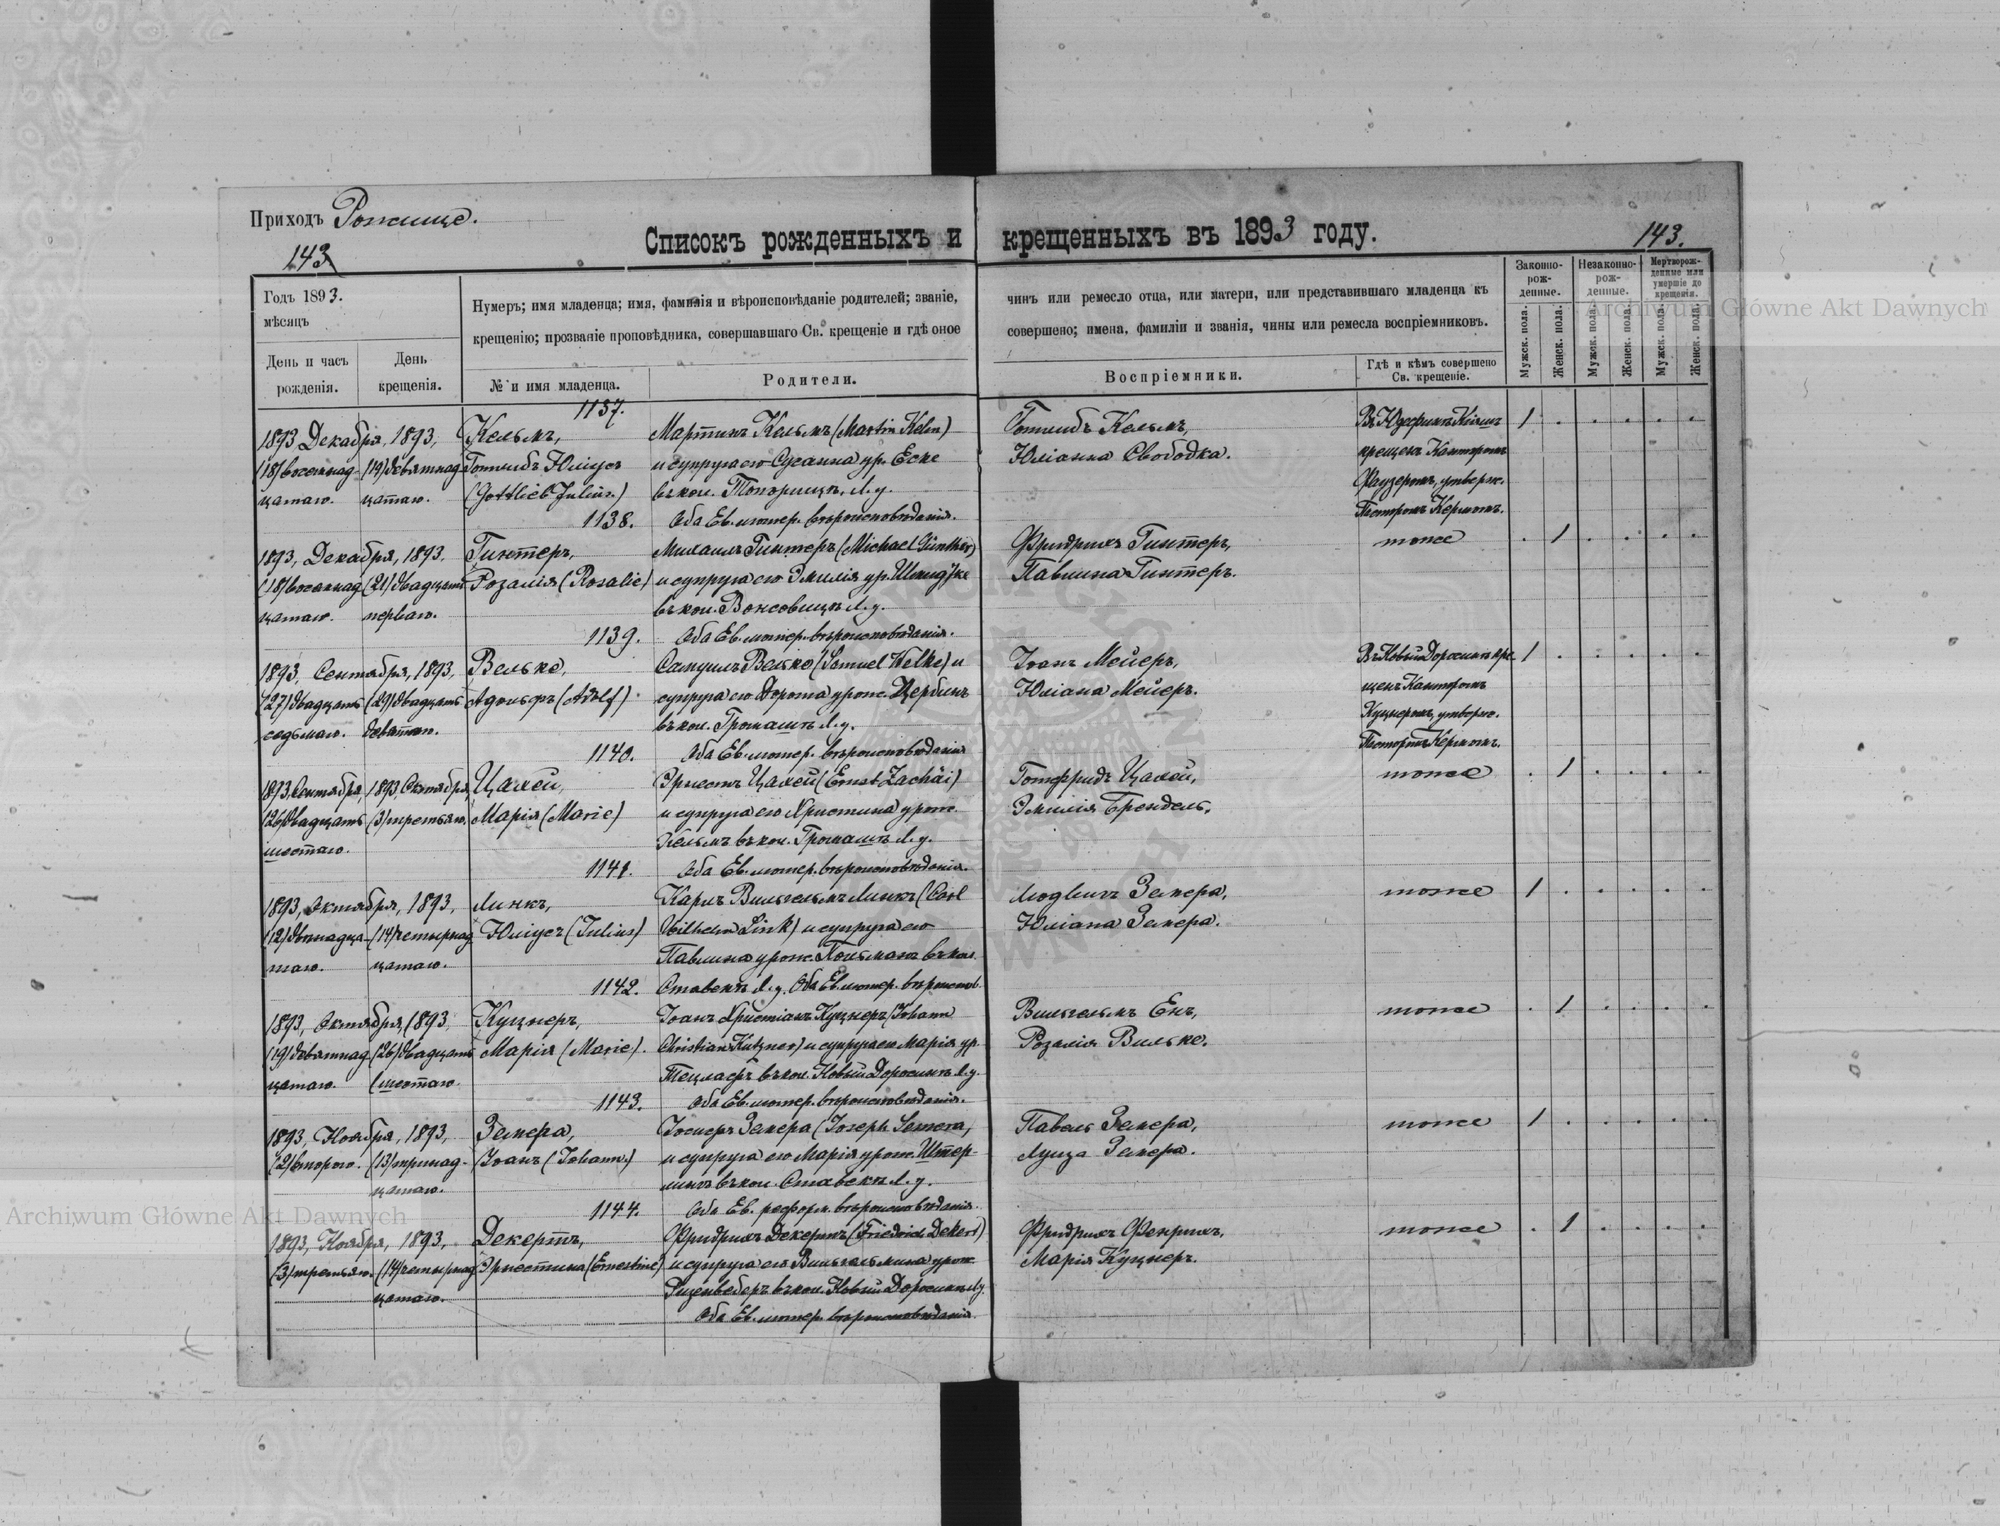 Приходъ Рожище.
143
Списокъ рожденныхъ и крещенныхъ въ 1893 году.
143.
Годъ 1893.
мѣсяцъ
День и часъ рожденія.
День крещенія.
Нумеръ; имя младенца; имя, фамилія и вѣроисповѣданіе родителей; званіе, чинъ или ремесло отца, или матери, или представившаго младенца къ
крещенію; прозваніе проповѣдника, совершавшаго Св. крещеніе и гдѣ оное совершено; имена, фамиліи и званія, чины или ремесла воспріемниковъ.
№ и имя младенца.
Родители.
Воспріемники.
Гдѣ и кѣмъ совершено Св. крещеніе.
Законно-рож-денные.
Незаконно-рож-денные.
Мертворож-денные или умершіе до крещенія.
Мужск. пола.
Женск. пола.
Мужск. пола.
Женск. пола.
Мужск. пола.
Женск. пола.
1137.
1893 Декабря, 1893, Кельмъ, Мартинъ Кельмъ (Martin Kelm) Готлибъ Кельмъ, 1
(18) восемнад- (19) девятнад- Готлибъ Юліусъ и супруга его Сусанна ур. Еске Юліанна Свободка. крещенъ Канторомъ
цатаго. цатаго. (Gottlieb Julius.) въ кол. Топорищѣ, Л. у. утвержд.
1138. Оба Ев. лютер. вѣроисповѣданія. Пасторомъ Кермомъ.
1893, Декабря, 1893. Гинтеръ, Михаилъ Гинтеръ (Michael Günther) Фридрихъ Гинтеръ, тоже 1
(18) восемнад- (21) двадцать Розалія (Rosalie) и супруга его Эмилія ур. Павлина Гинтеръ.
цатаго. перваго. въ кол. Л. у.
1139. Оба Ев. лютер. вѣроисповѣданія.
1893, Сентября, 1893, Вельке, Самуилъ Вельке (Samuel Welke) и Іоанъ Мейеръ, Въ Новый Доросинѣ кре- 1
(27) двадцать (29) двадцать Адольфъ (Adolf) супруга его Дорота урож. Цербинъ Юліана Мейеръ. щенъ Канторомъ
седьмаго. девятаго. въ кол. Громашъ Л. у. Куцнеромъ, утвержд.
1140. Оба Ев. лютер. вѣроисповѣданія Пасторомъ Кермомъ.
1893, Сентября, 1893, Октября, Цахей, Эрнестъ Цахей (Ernst Zachäi) Готфридъ Цахей, тоже 1
(26) двадцать (3) третьяго. Марія (Marie) и супруга его Христина урож. Эмилія Брендель.
шестаго. Кельмъ въ кол. Громашъ Л. у.
1141. Оба Ев. лютер. вѣроисповѣданія.
1893, Октября, 1893, Линкъ, Карлъ Вильгельмъ Линкъ (Carl Людвигъ Земера, тоже 1
(12) двѣнадца- (14) четырнад- Юліусъ (Julius) Wilhelm Link) и супруга его Юліана Земера.
таго. цатаго. Павлина урож. въ кол.
1142. Ставекъ Л. у. Оба Ев. лютер. вѣроисповѣд.
1893, Октября, 1893, Куцнеръ, Іоанъ Христіанъ Куцнеръ (Johann Вильгельмъ Енъ, тоже 1
(19) девятнад- (26) двадцать Марія (Marie). Christian Kutzner) и супруга его Марія ур. Розалія Вильке.
цатаго. шестаго. Тецлафъ въ кол. Новый Доросинъ Л. у.
1143. Оба Ев. лютер. вѣроисповѣданія.
1893, Ноября, 1893, Земера, Іосифъ Земера (Joseph Semera, Павелъ Земера, тоже 1
(2) второго. (13) тринад- Іоанъ (Johann.) и супруга его Марія урож. Луиза Земера.
цатаго. въ кол. Ставекъ Л. у.
1144. Оба Ев. реформ. вѣроисповѣданія.
1893, Ноября, 1893, Декертъ, Фридрихъ Декертъ (Friedrich Dekert) Фридрихъ Фенрихъ, тоже 1
(3) третьяго. (14) четырнад- Эрнестина (Ernestine) и супруга его Вильгельмина урож. Марія Куцнеръ.
цатаго. въ кол. Новый Доросинъ Л. у.
Оба Ев. лютер. вѣроисповѣданія.
Archiwum Główne Akt Dawnych
Archiwum Główne Akt Dawnych